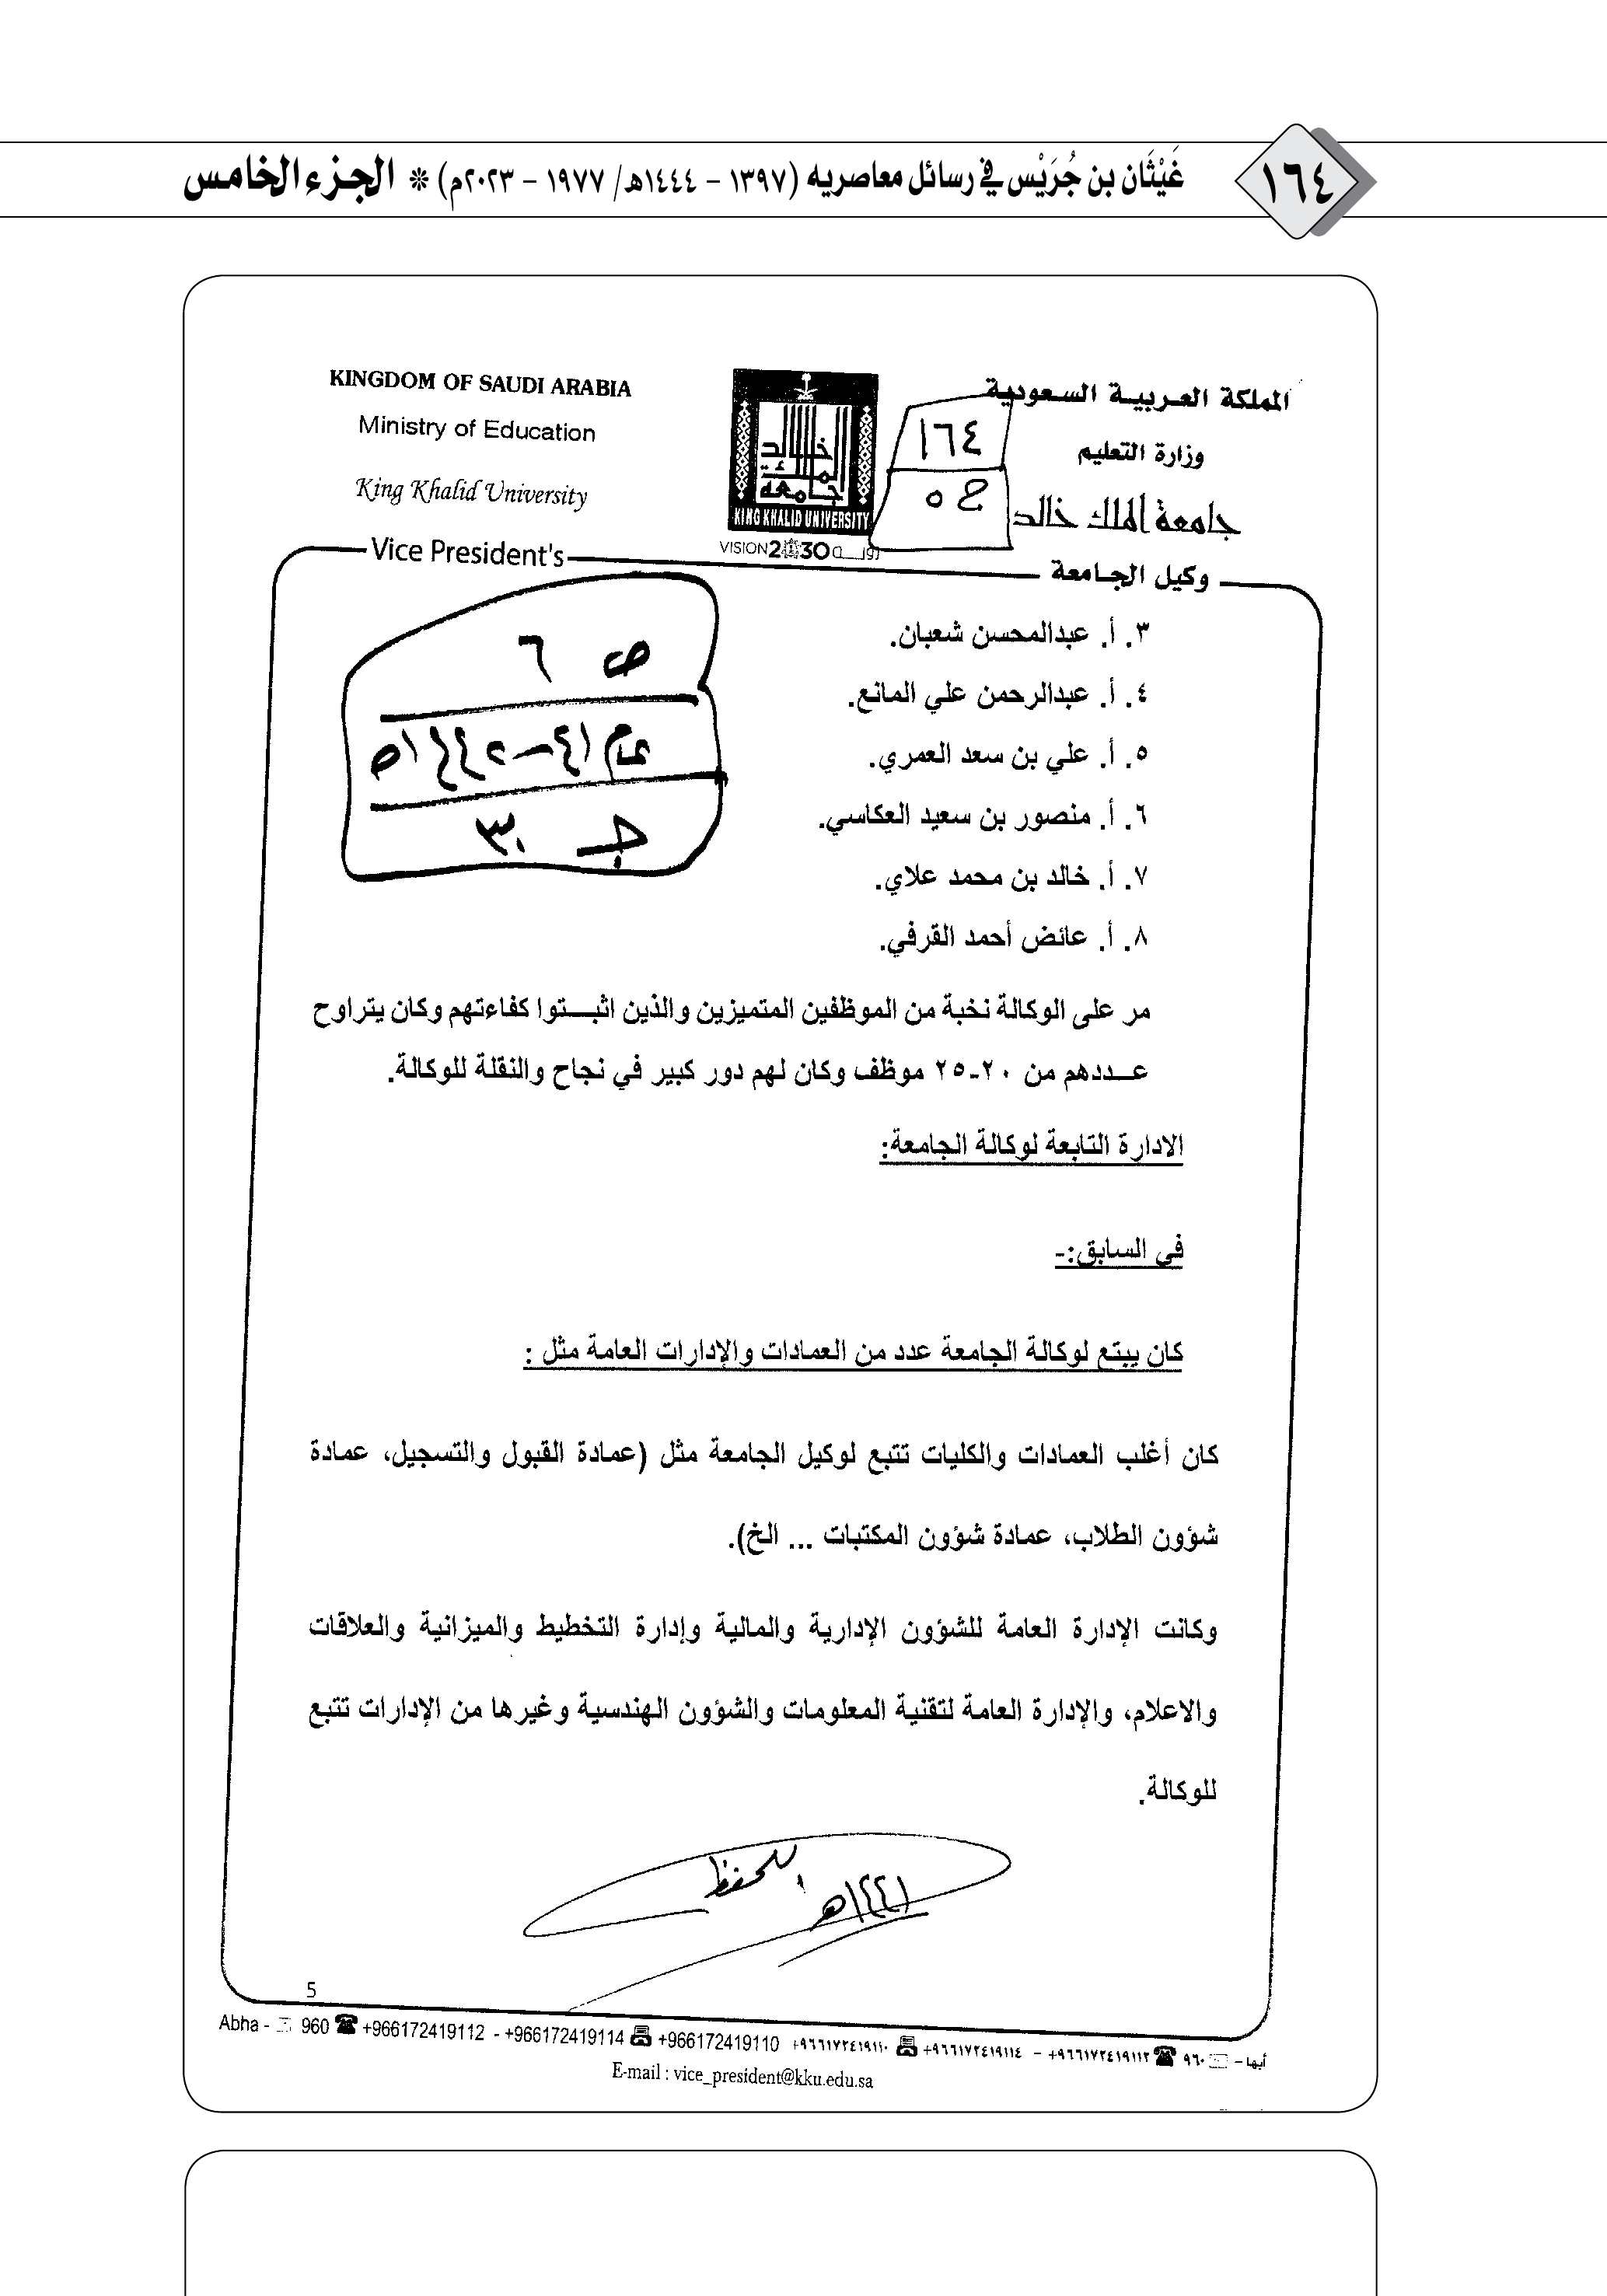 ١٦٤
غَيْثَان بن جُرَيْس في رسائل معاصريه (١٣٩٧ – ١٤٤٤هـ/ ١٩٧٧ – ٢٠٢٣م) * الجزء الخامس
المملكة العربية السعودية
وزارة التعليم
جامعة الملك خالد
وكيل الجامعة
١٦٤
ج ٥
جامعة الملك خالد
KING KHALID UNIVERSITY
VISION 2030 رؤية
KINGDOM OF SAUDI ARABIA
Ministry of Education
King Khalid University
Vice President's
ص ٦
ج ٣٠
٣. أ. عبدالمحسن شعبان.
٤. أ. عبدالرحمن علي المانع.
٥. أ. علي بن سعد العمري.
٦. أ. منصور بن سعيد العكاسي.
٧. أ. خالد بن محمد علاي.
٨. أ. عائض أحمد القرفي.
مر على الوكالة نخبة من الموظفين المتميزين والذين اثبــتوا كفاءتهم وكان يتراوح
عــددهم من ٢٠-٢٥ موظف وكان لهم دور كبير في نجاح والنقلة للوكالة.
الادارة التابعة لوكالة الجامعة:
في السابق:-
كان يبتع لوكالة الجامعة عدد من العمادات والإدارات العامة مثل :
كان أغلب العمادات والكليات تتبع لوكيل الجامعة مثل (عمادة القبول والتسجيل، عمادة
شؤون الطلاب، عمادة شؤون المكتبات ... الخ).
وكانت الإدارة العامة للشؤون الإدارية والمالية وإدارة التخطيط والميزانية والعلاقات
والاعلام، والإدارة العامة لتقنية المعلومات والشؤون الهندسية وغيرها من الإدارات تتبع
للوكالة.
للحفظ
١٤٤١هـ
5
Abha - 960 +966172419112 - +966172419114 +966172419110 +٩٦٦١٧٢٤١٩١١٠ +٩٦٦١٧٢٤١٩١١٤ – +٩٦٦١٧٢٤١٩١١٢ ٩٦٠ – أبها
E-mail : vice_president@kku.edu.sa